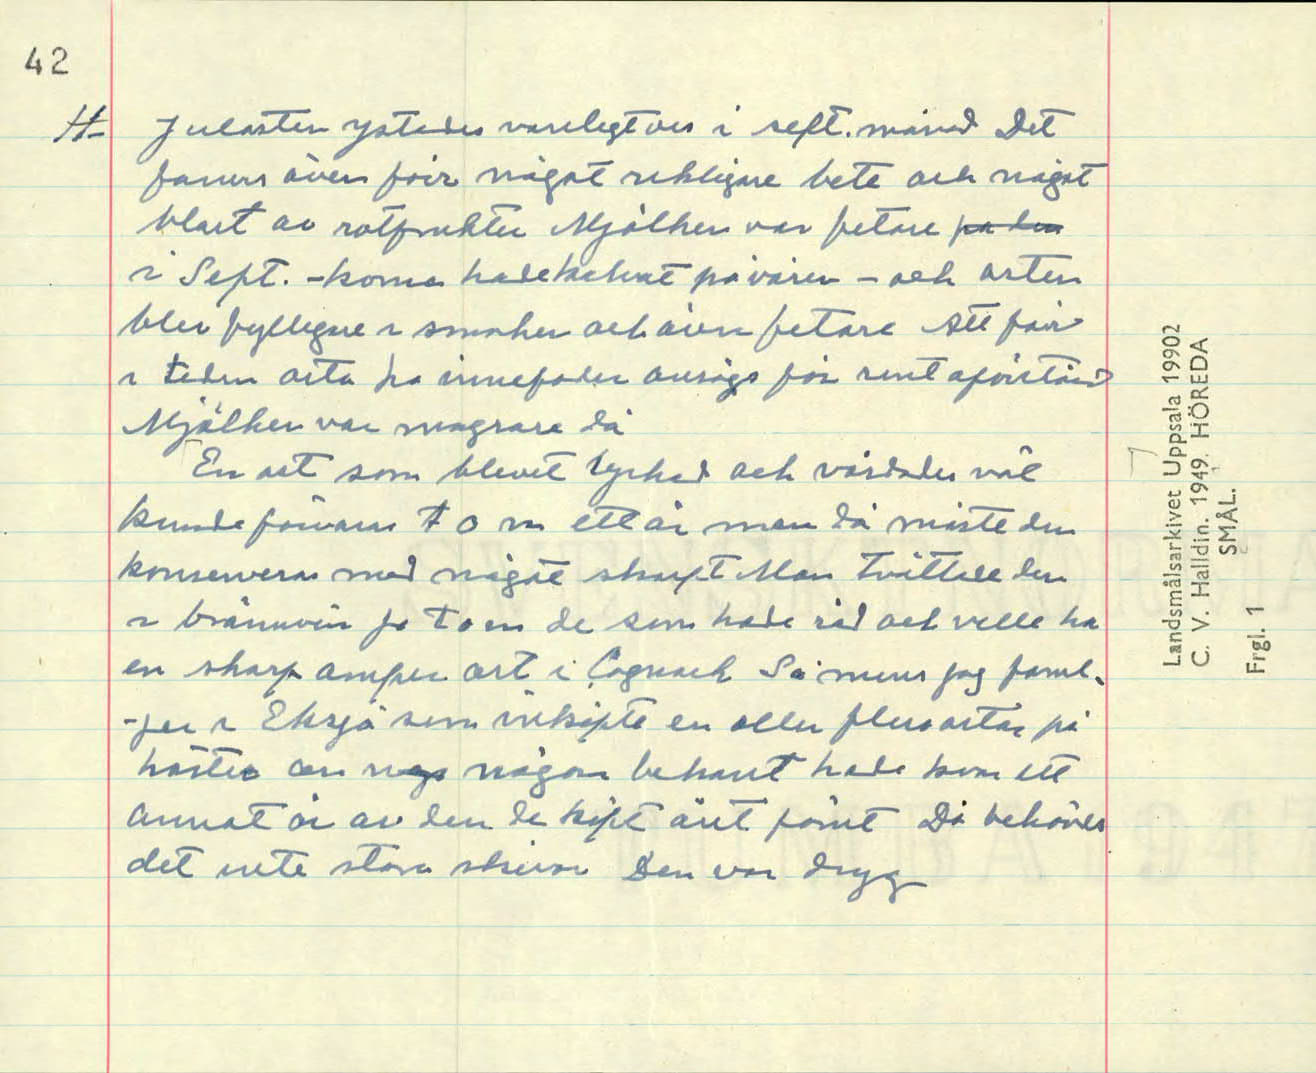 42
H Julosten ystades vanligtvis i sept. månad Det
fanns även förr något rikligare bete och något
blast av rotfrukter Mjölken var fetare på den
i Sept. - korna hade kalvat på våren - och osten
blev fylligare i smaken och även fetare Att förr
i tiden osta på innefoder ansågs för rent oförstånd
Mjölken var magrare då
En ost som blevet lyckad och vårdades väl
kunde förvaras t o m ett år men då måste den
konserveras med något skarpt Man tvättade den
i brännvin ja t o m de som hade råd och velle ha
en skarp amper ost i Cognack Så minns jag famil-
-jer i Eksjö som inköpte en eller flera ostar på
hösten om någon bekant hade kvar ett
annat år av den de köpt året förut Då behövdes
det inte stora skivor Den var dryg
Landsmålsarkivet Uppsala 19902
C. V. Halldin. 1949. HÖREDA
SMÅL.
Frgl. 1